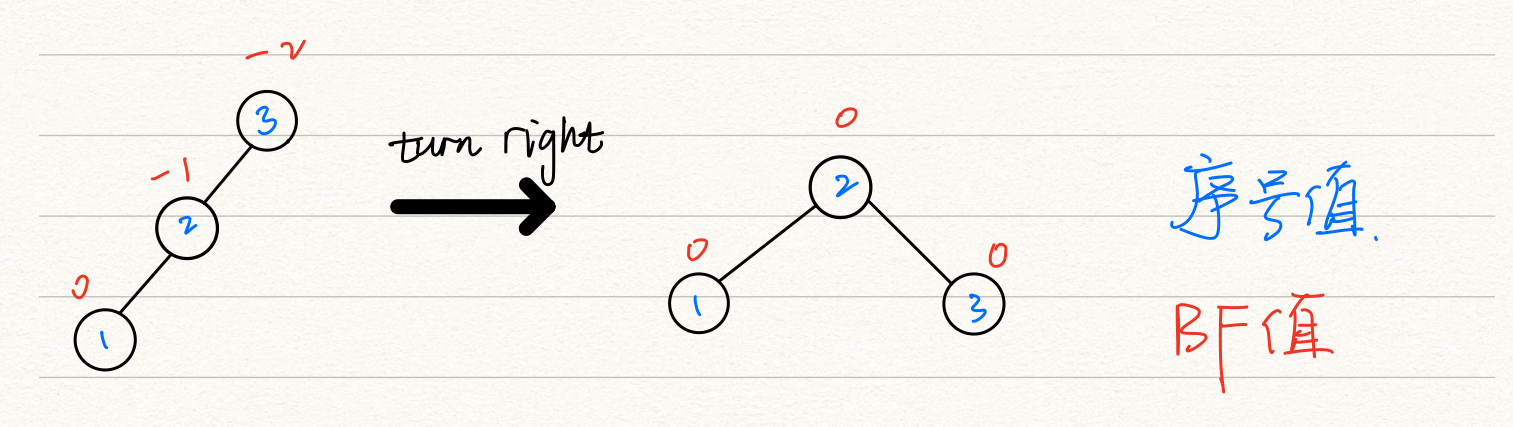 -2
3
-1
2
0
1
turn right
0
2
0
1
0
3
序号值.
BF值